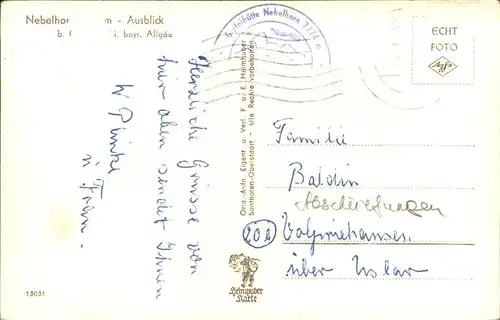 Nebelhor m - Ausblick
b. i. bayr. Allgäu
Gipfelhütte Nebelhorn 2224 m
ECHT
FOTO
Agfa
Herzliche Grüsse von
hier oben sendet Ihnen
W
u. Frau.
Orig.-Aufn. Eigent. u. Verl. F. u. E. Heimhuber
Sonthofen-Oberstdorf Alle Rechte vorbehalten
Familie
Baldin
(20a) Volpriehausen
über Uslar
Heimhuber
Karte
13031